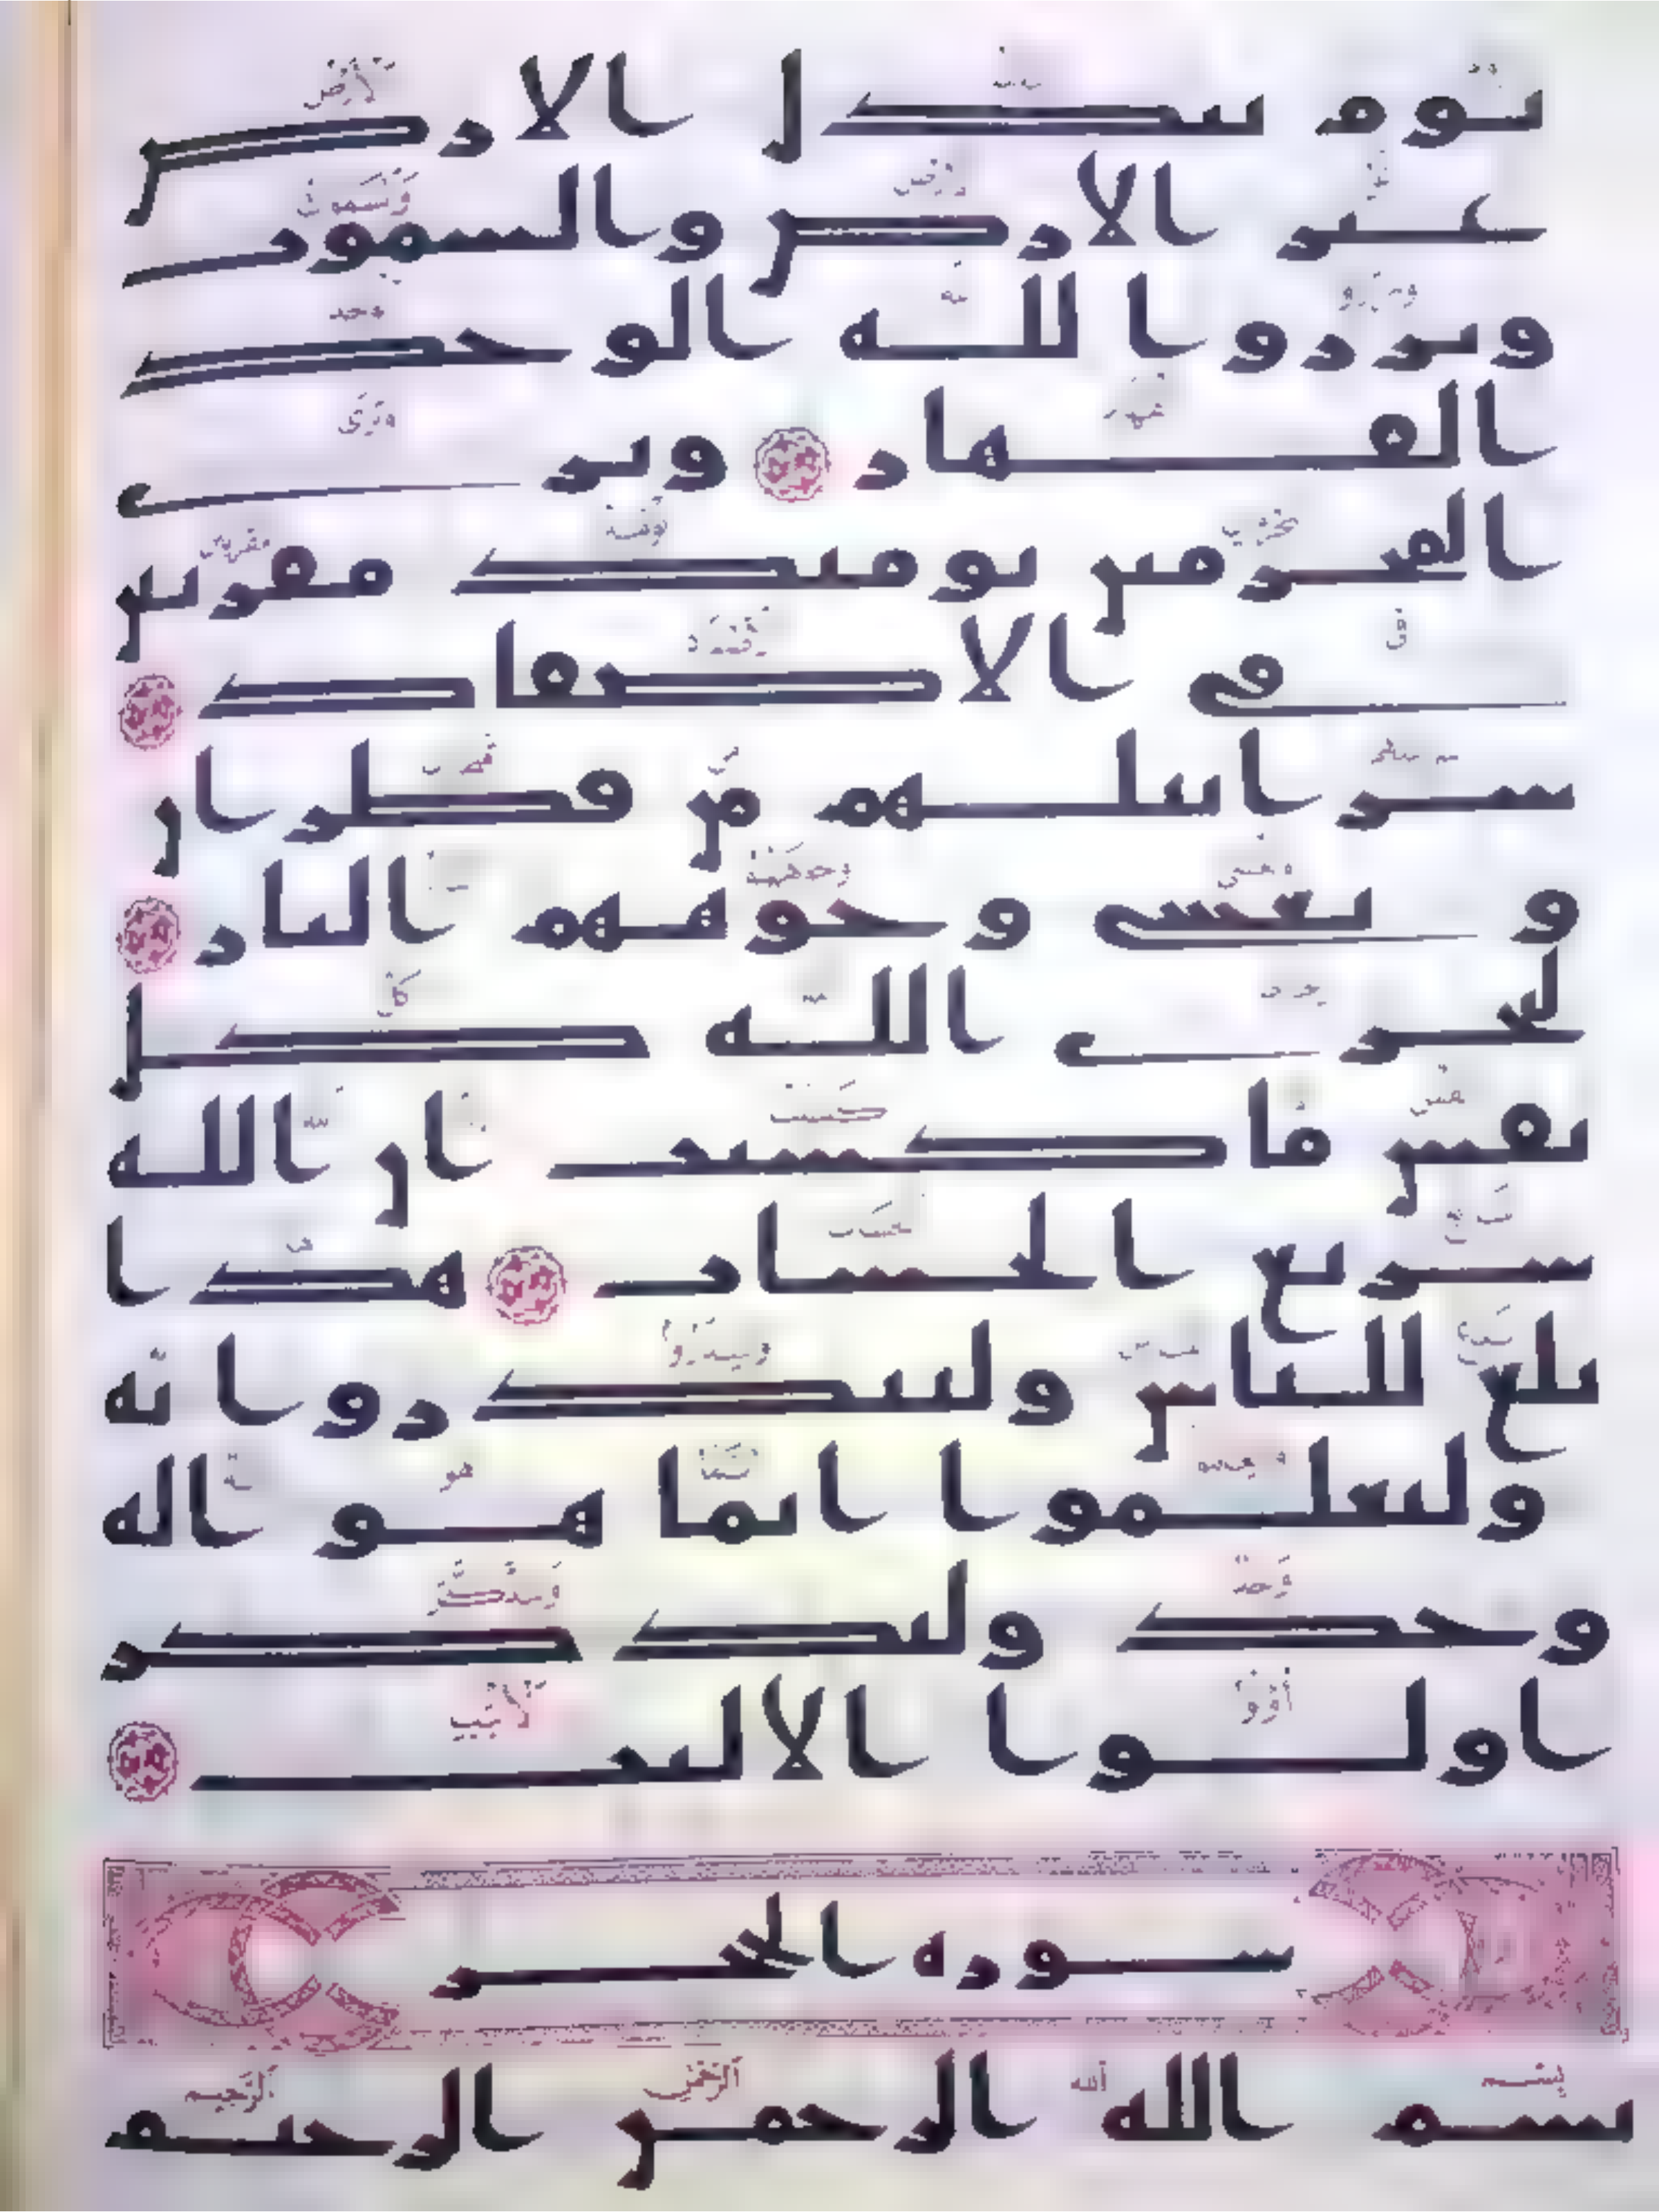 يوم تبدل الارض
غير الارض والسموت
وبرزوا لله الوحد
القهار وترى
المجرمين يومئذ مقرنين
في الاصفاد
سرابيلهم من قطران
و تغشى وجوههم النار
ليجزى الله كل
نفس ما كسبت ان الله
سريع الحساب هذا
بلغ للناس ولينذروا به
وليعلموا انما هو اله
وحد وليذكر
اولوا الالبب
سورة الحجر
بسم الله الرحمن الرحيم